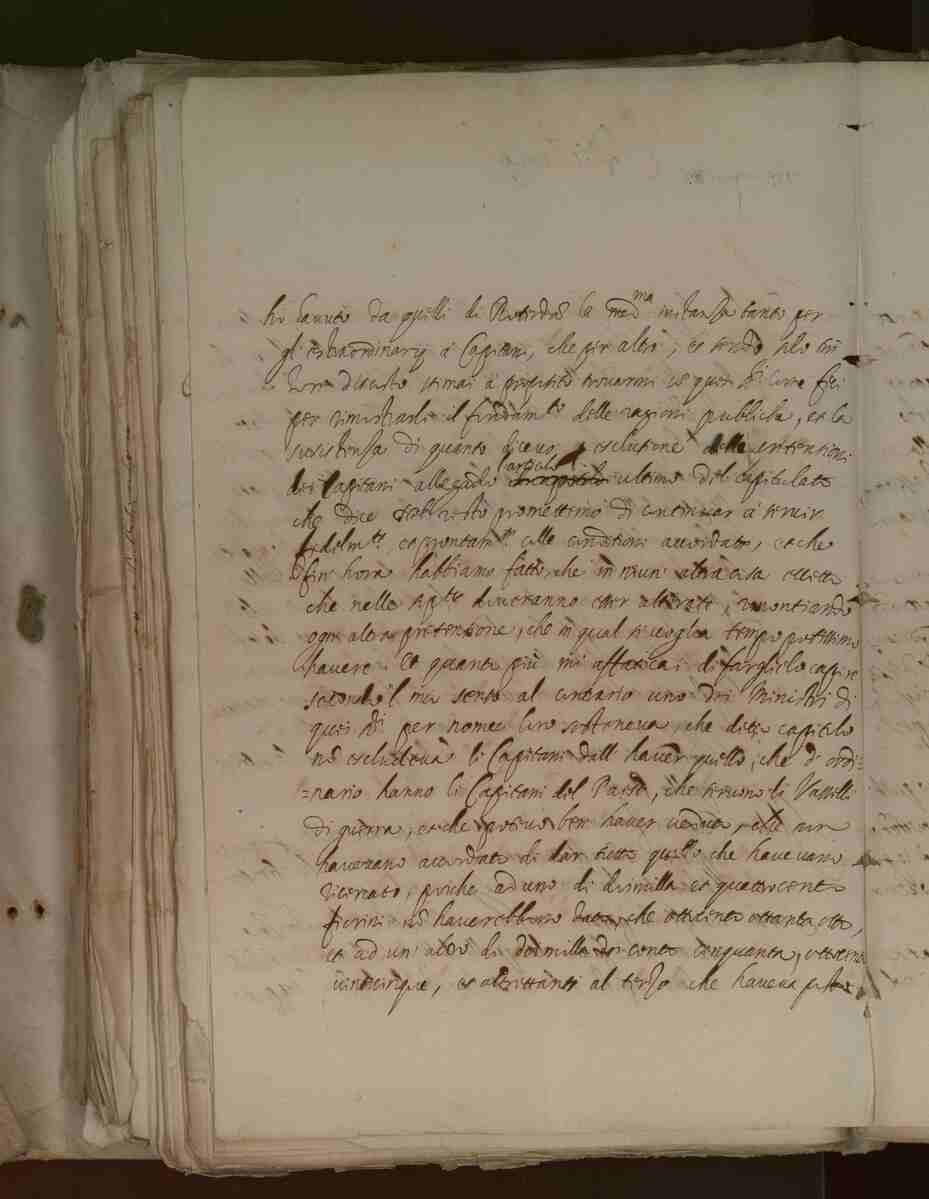 ho havuto da quelli di Roterdō la med.ma instanza tanto per
gl'estraordinarij à Capitani, che per altro; et sendo
stimai à proposito trovarmi cō quei Sri come feci
per rimostrarli il fondam.to delle ragioni publiche, et la
sussistenza di quanto dicevo, esclusione delle pretensioni
dei Capitani allegādo l'articolo ultimo del capitulato
che dice Del resto promettemo di continuar à servir
fidelm.te, et prontam.te colle conditioni accordate, et che
fin' hora habbiamo fatto, che in niun' altra cosa eccetto
che nelle sop.te doveranno esser alterate, renontiando
ogni altra pretensione, che in qual si voglia tempo potessimo
havere. Et quanto più mi affaticai di farglielo capire
secondo il mio senso al contrario uno dei Ministri di
quei Sri per nome loro sosteneva, che detto capitolo
nō escludeva li Capitani dall' haver quello, che d' ordi=
=nario hanno li Capitani del Paese, che servono li Vasselli
di guerra, et che potevo ben haver veduto, che non
havevano accordato di dar tutto quello che havevano
ricercato, poiche ad uno di doimilla et quattrocento
fiorini nō haverebbero dato, che ottocento ottanta otto,
et ad un' altro di doimilla doi cento cinquanta, ottocento
vinticinque, et altrettanti al terzo che haveva